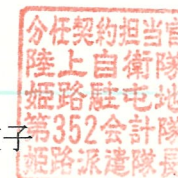 分任契約担当官
陸上自衛隊
姫路駐屯地
第352会計隊
姫路派遣隊長
子